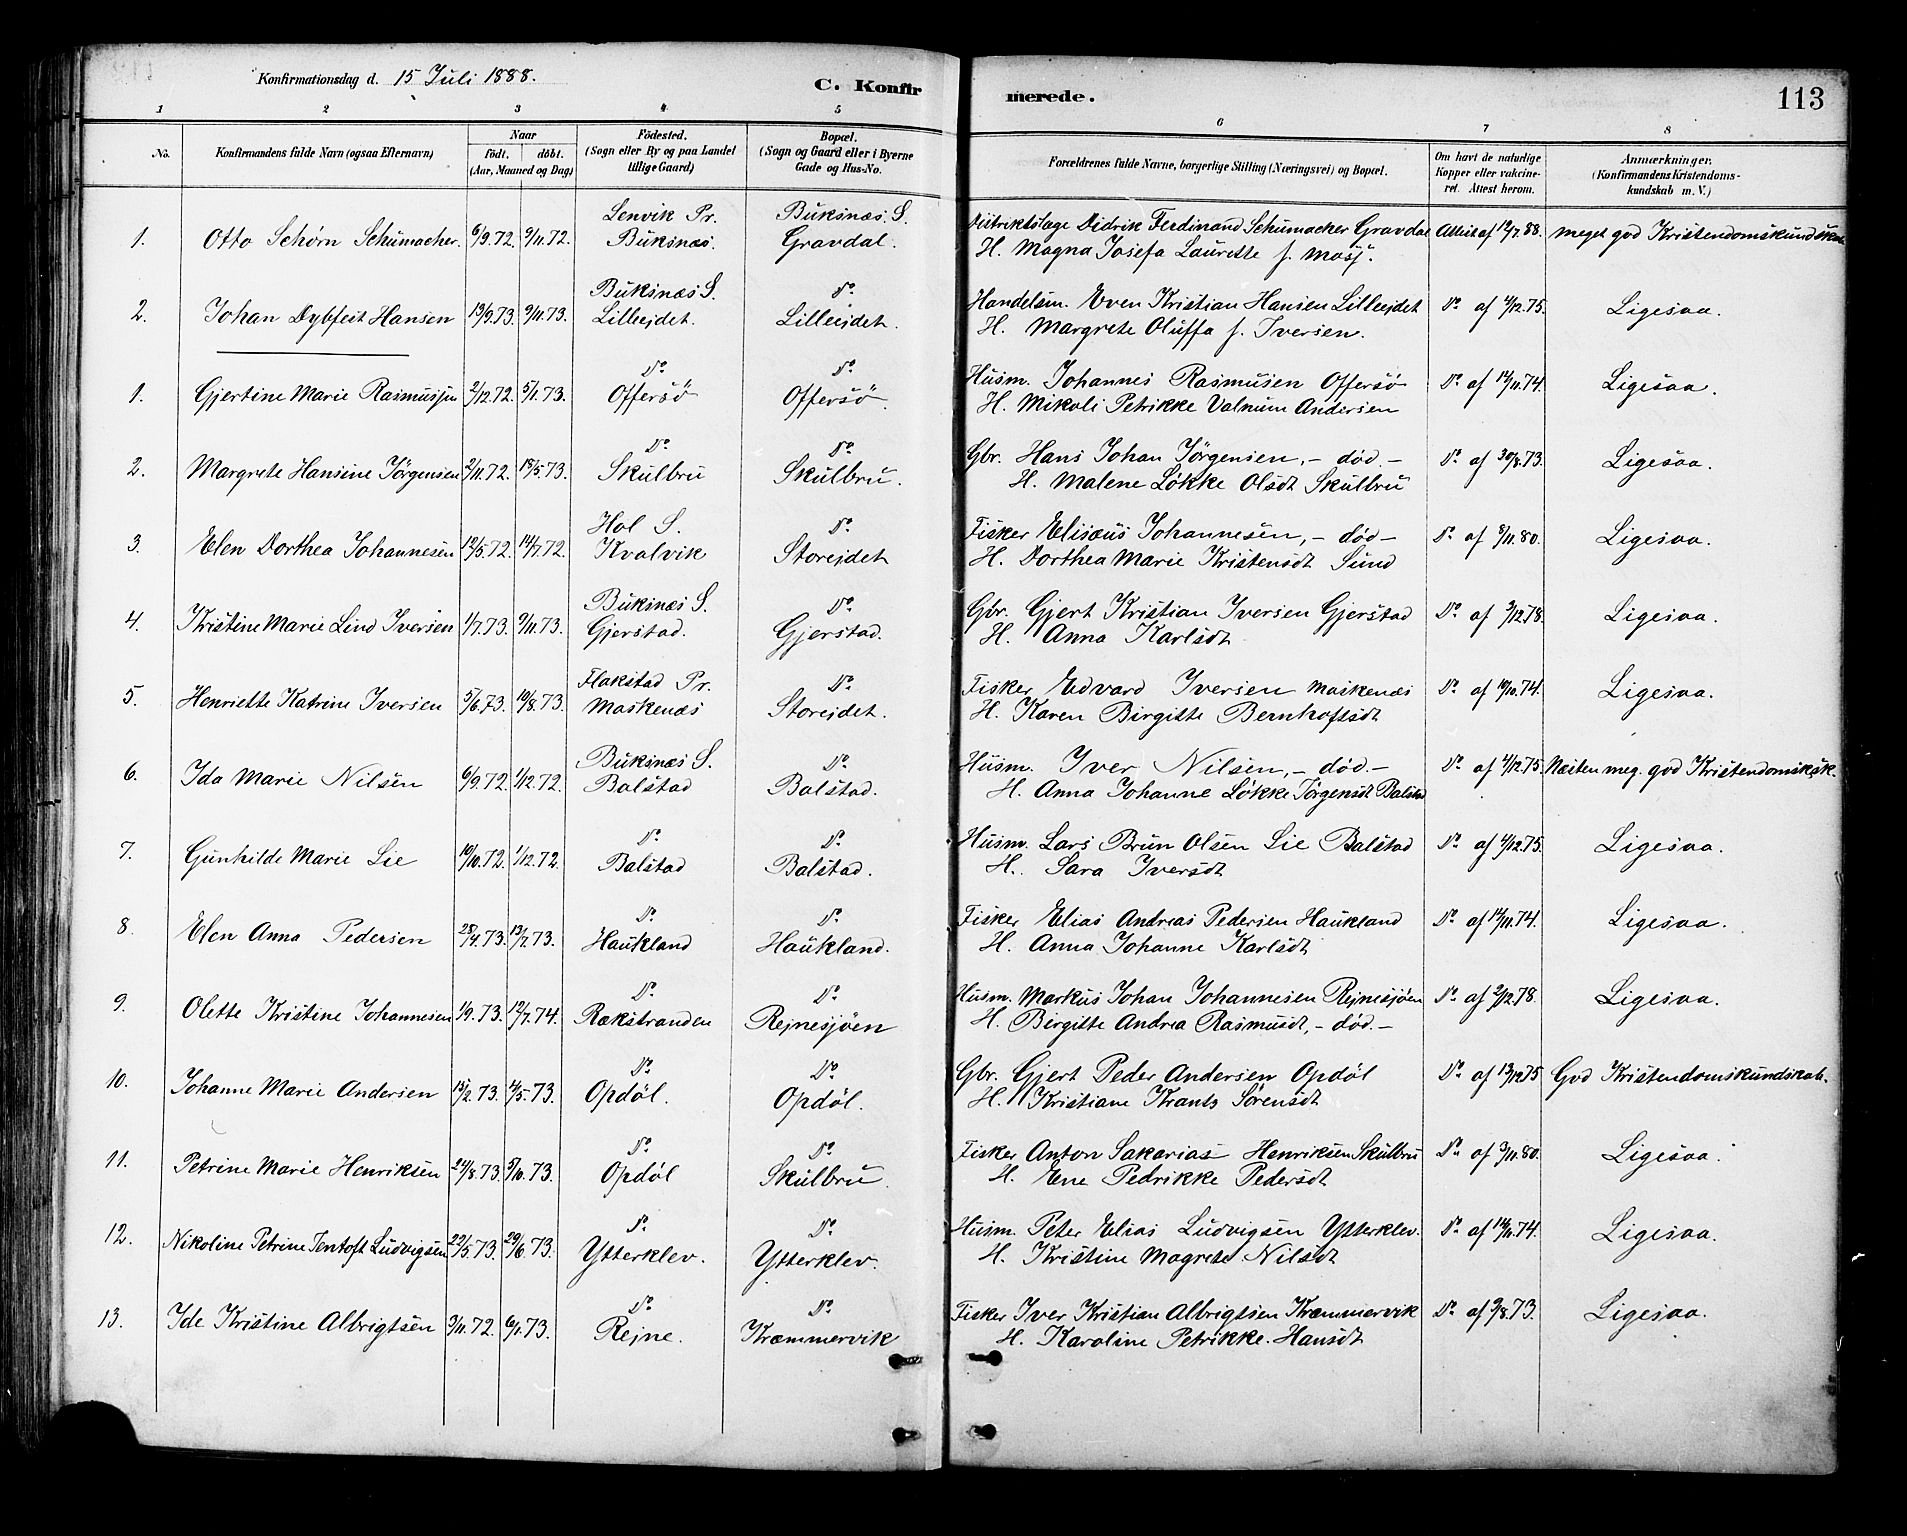 Konfirmationsdag d. 15 Juli 1888.
C. Konfirmerede.
113
1 2 3 4 5 6 7 8
No.
Konfirmandens fulde Navn (ogsaa Efternavn)
Naar
født. døbt.
(Aar, Maaned og Dag)
Födested.
(Sogn eller By og paa Landet
tillige Gaard)
Bopæl.
(Sogn og Gaard eller i Byerne
Gade og Hus-No.
Forældrenes fulde Navne, borgerlige Stilling (Næringsvei) og Bopæl.
Om havt de naturlige
Kopper eller vakcine-
ret. Attest herom.
Anmærkninger.
(Konfirmandens Kristendoms-
kundskab m. V.)
1. Otto Schørn Schumacher. 6/9.72. 9/11.72. Lenvik Pr. Buksnæs. Buksnæs. S. Gravdal.
Distriktslæge Didrik Ferdinand Schumacher Gravdal
H. Magna Josefa Laurette f. Mosj.
Attest af 12/7.88. Meget god Kristendomskundskab
2. Johan Dybfest Hansen 19/9.73. 9/11.73. Buksnæs S. Lilleejdet. Do Lilleejdet.
Handelsm. Even Kristian Hansen Lilleejdet
H. Margrete Oluffa f. Iversen.
Do af 4/12.75. Ligesaa.
1. Gjertine Marie Rasmussen 2/12.72. 5/1.73. Do Offersö Do Offersö.
Husm. Johannes Rasmusen Offersö
H. Mikoli Petrikke Valnum Andersen
Do af 14/11.74. Ligesaa.
2. Margrete Hansine Jørgensen 2/11.72. 18/5.73. Do Skulbru Do Skulbru.
Gbr. Hans Johan Jörgensen, - död. -
H. Malene Løkke Olsdt Skulbru
Do af 30/8.73. Ligesaa.
3. Elen Dorthea Johannesen 12/5.72. 14/7.72. Hol S. Kvalvik Do Storejdet
Fisker Elisæus Johannesen, - død -
H. Dorthea Marie Kristensdt Sund
Do af 8/11.80. Ligesaa.
4. Kristine Marie Lind Iversen 1/7.73. 9/11.73. Buksnæs S. Gjerstad. Do Gjerstad.
Gbr. Gjert Kristian Iversen Gjerstad
H. Anna Karlsdt
Do af 3/12.78. Ligesaa.
5. Henriette Katrine Iversen 5/6.73. 10/8.73. Flakstad Pr. Moskenæs Do Storejdet.
Fisker Edvard Iversen Moskenæs
H. Karen Birgitte Bernhoftsdt
Do af 10/10.74. Ligesaa.
6. Ida Marie Nilsen 6/9.72. 1/12.72. Buksnæs S. Balstad Do Balstad.
Husm. Iver Nilsen, - död. -
H. Anna Johanne Løkke Jörgensdt Balstad
Do af 4/12.75. Næsten meg. god Kristendomsksk.
7. Gunhilde Marie Lie 10/10.72. 1/12.72. Do Balstad Do Balstad.
Husm. Lars Brun Olsen Lie Balstad
H. Sara Iversdt
Do af 4/12.75. Ligesaa.
8. Elen Anna Pedersen 28/4.73. 13/7.73. Do Haukland Do Haukland.
Fisker Elias Andreas Pedersen Haukland
H. Anna Johanne Karlsdt
Do af 14/11.74. Ligesaa.
9. Olette Kristine Johannesen 1/9.73. 12/7.74. Do Rækstranden Do Rejnesjöen
Husm. Markus Johan Johannesen Rejnesjöen
H. Birgitte Andrea Rasmusdt, - död. -
Do af 2/12.78. Ligesaa.
10. Johanne Marie Andersen 15/2.73. 4/5.73. Do Opdøl. Do Opdøl.
Gbr. Gjert Peder Andersen Opdøl
H. Kristiane Krants Sørensdt
Do af 13/12.75 God Kristendomskundskab.
11. Petrine Marie Henriksen 24/8.73. 5/10.73. Do Opdøl Do Skulbru.
Fisker Anton Sakarias Henriksen Skulbru
H. Ene Pedrikke Pedersdt
Do af 3/11.80. Ligesaa.
12. Nikoline Petrine Tentoft Ludvigsen 22/5.73. 29/6.73. Do Ytterklev. Do Ytterklev.
Husm. Peter Elias Ludvigsen Ytterklev.
H. Kristine Magrete Nilsdt
Do af 14/11.74. Ligesaa.
13. Ide Kristine Albrigtsen 3/11.72. 6/1.73. Do Rejne. Do Kræmmervik
Fisker Iver Kristian Albrigtsen Kræmmervik
H. Karoline Petrikke Hansdt
Do af 9/8.73. Ligesaa.